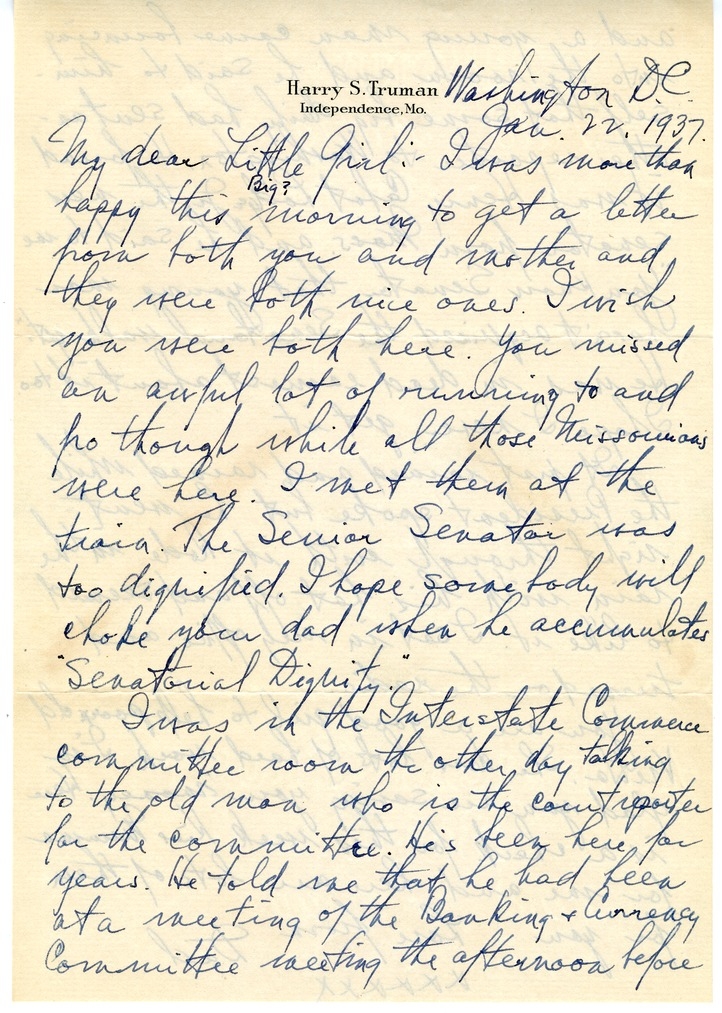 Harry S. Truman Washington D.C.
Independence, Mo.
Jan. 22, 1937.
My dear Little Girl:- I was more than
Big?
happy this morning to get a letter
from both you and mother and
they were both nice ones. I wish
you were both here. You missed
an awful lot of running to and
fro though while all those Missourians
were here. I met them at the
train. The Senior Senator was
too dignified. I hope somebody will
choke your dad when he accumulates
"Senatorial Dignity."
I was in the Interstate Commerce
committee room the other day talking
to the old man who is the court reporter
for the committee. He's been here for
years. He told me that he had been
at a meeting of the Banking & Currency
Committee meeting the afternoon before